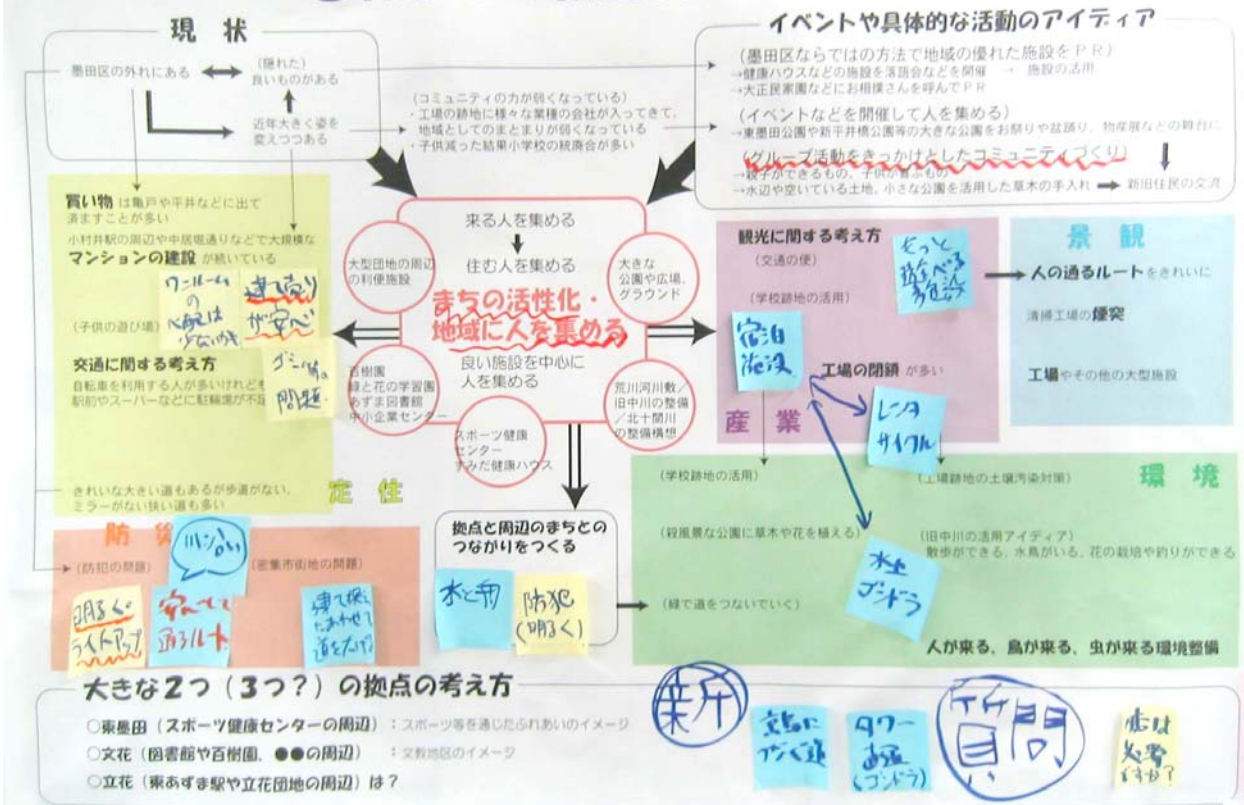 現状
墨田区の外れにある
(隠れた)
良いものがある
近年大きく姿を
変えつつある
(コミュニティの力が弱くなっている)
・工場の跡地に様々な業種の会社が入ってきて、
地域としてのまとまりが弱くなっている
・子供減った結果小学校の統廃合が多い
イベントや具体的な活動のアイディア
(墨田区ならではの方法で地域の優れた施設をPR)
→健康ハウスなどの施設を落語会などを開催 → 施設の活用
→大正民家園などにお相撲さんを呼んでPR
(イベントなどを開催して人を集める)
→東墨田公園や新平井橋公園等の大きな公園をお祭りや盆踊り、物産展などの舞台に
(グループ活動をきっかけとしたコミュニティづくり)
→親子ができるもの、子供が喜ぶもの
→水辺や空いている土地、小さな公園を活用した草木の手入れ → 新旧住民の交流
買い物は亀戸や平井などに出て
済ますことが多い
小村井駅の周辺や中居堀通りなどで大規模な
マンションの建設が続いている
ワンルーム
の
建て売り
(子供の遊び場)
交通に関する考え方
自転車を利用する人が多いけれども
駅前やスーパーなどに駐輪場が不足
ゴミ
問題
きれいな大きい道もあるが歩道がない、
ミラーがない狭い道も多い
定住
来る人を集める
住む人を集める
まちの活性化・
地域に人を集める
良い施設を中心に
人を集める
大型団地の周辺
の利便施設
大きな
公園や広場、
グラウンド
百樹園
緑と花の学習園
あずま図書館
中小企業センター
スポーツ健康
センター
すみだ健康ハウス
荒川河川敷/
旧中川の整備
/北十間川
の整備構想
観光に関する考え方
(交通の便)
(学校跡地の活用)
宿泊
施設
工場の閉鎖が多い
レンタ
サイクル
産業
景観
人の通るルートをきれいに
清掃工場の煙突
工場やその他の大型施設
環境
(学校跡地の活用)
(工場跡地の土壌汚染対策)
(殺風景な公園に草木や花を植える)
(旧中川の活用アイディア)
散歩ができる、水鳥がいる、花の栽培や釣りができる
水上
ゴンドラ
(緑で道をつないでいく)
人が来る、鳥が来る、虫が来る環境整備
防災
(防犯の問題)
(密集市街地の問題)
明るく
ライトアップ
通るルート
拠点と周辺のまちとの
つながりをつくる
防犯
(明るく)
大きな2つ(3つ?)の拠点の考え方
○東墨田(スポーツ健康センターの周辺):スポーツ等を通じたふれあいのイメージ
○文花(図書館や百樹園、●●の周辺):文教地区のイメージ
○立花(東あずま駅や立花団地の周辺)は?
新
つなぐ道
タワー
(ゴンドラ)
質問
必要
ですか?